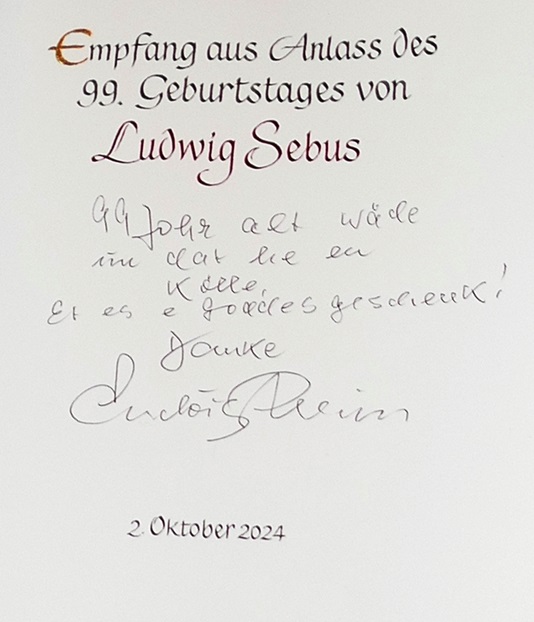 Empfang aus Anlass des
99. Geburtstages von
Ludwig Sebus
99 Johr alt wäde
un dat he en
Kölle,
Et es e goodes geschenk!
Danke
Ludwig Sebus
2. Oktober 2024